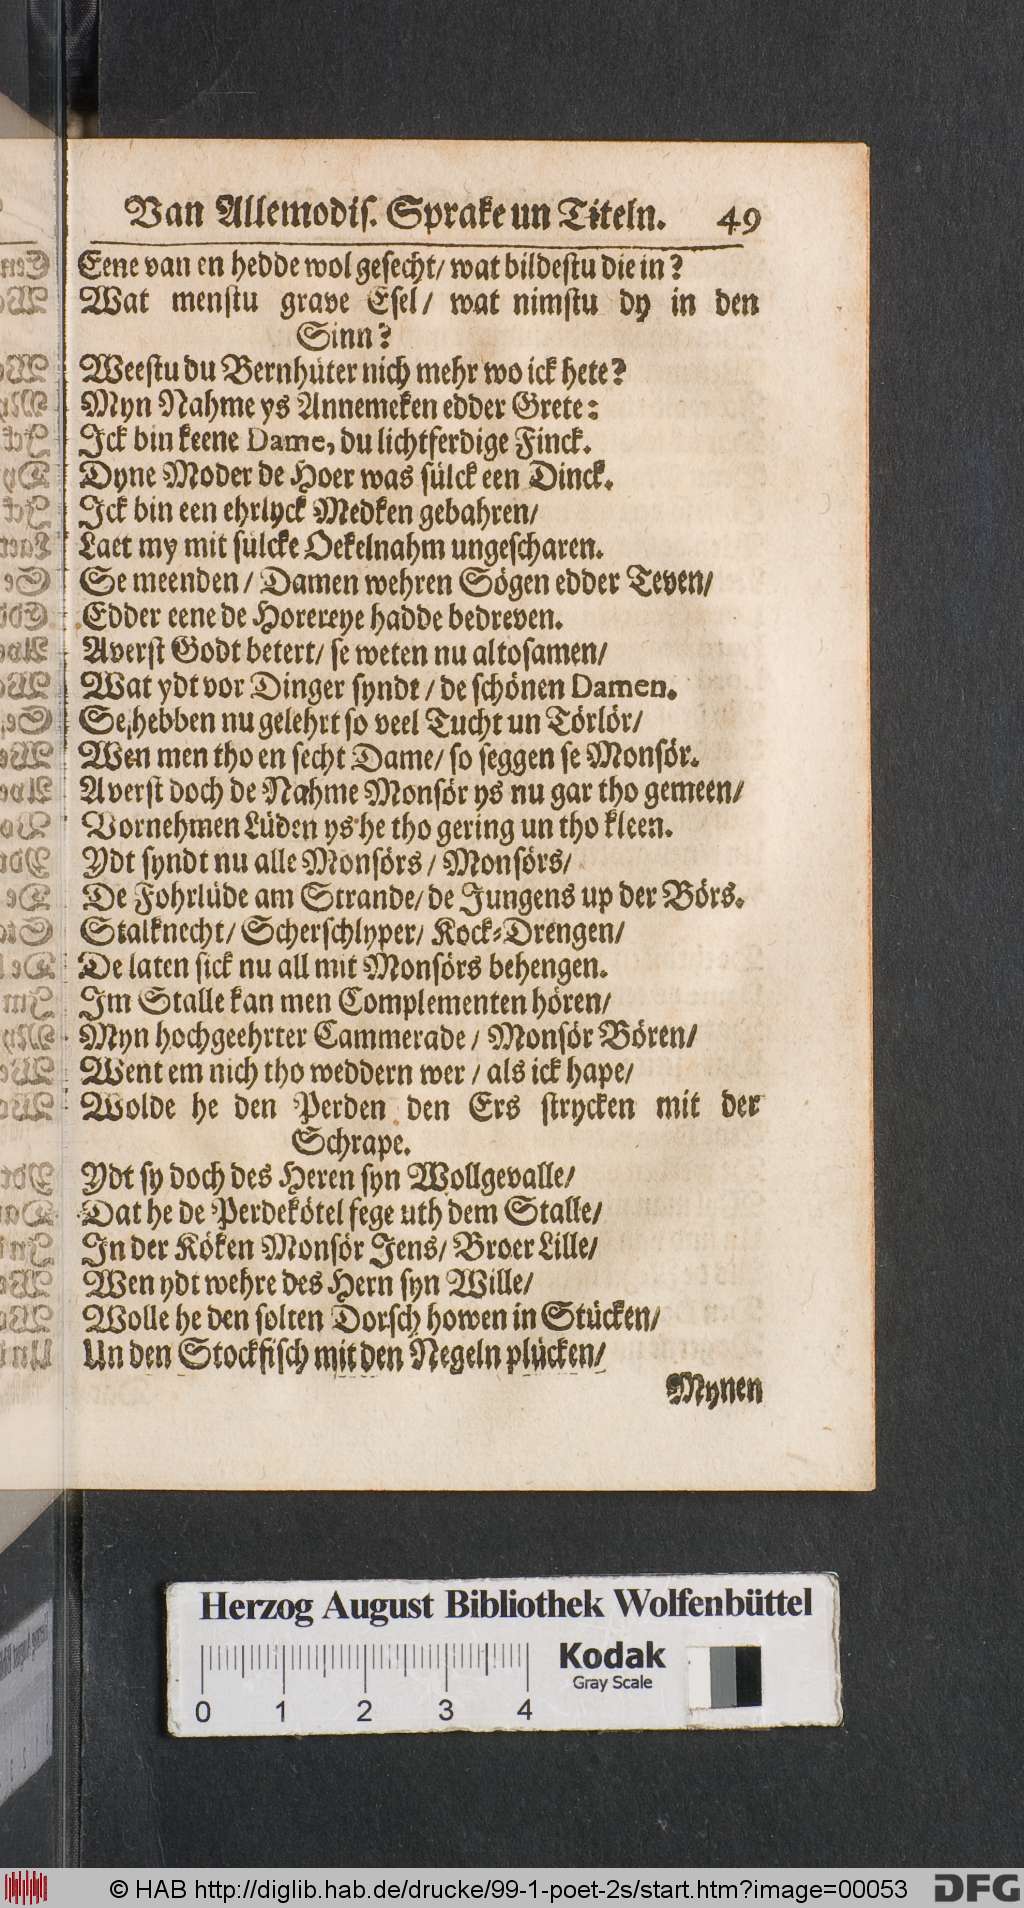 Van Allemodis. Sprake un Titeln. 49
Eene van en hedde wol gesecht/ wat bildestu die in?
Wat menstu grave Esel/ wat nimstu dy in den
Sinn?
Weestu du Bernhüter nich mehr wo ick hete?
Myn Nahme ys Annemeken edder Grete:
Ick bin keene Dame, du lichtferdige Finck.
Dyne Moder de Hoer was sülck een Dinck.
Ick bin een ehrlyck Medken gebahren/
Laet my mit sülcke Oekelnahm ungescharen.
Se meenden/ Damen wehren Sögen edder Teven/
Edder eene de Horereye hadde bedreven.
Averst Godt betert/ se weten nu altosamen/
Wat ydt vor Dinger syndt/ de schönen Damen.
Se hebben nu gelehrt so veel Tucht un Törlör/
Wen men tho en secht Dame/ so seggen se Monsör.
Averst doch de Nahme Monsör ys nu gar tho gemeen/
Vornehmen Lüden ys he tho gering un tho kleen.
Ydt syndt nu alle Monsörs/ Monsörs/
De Fohrlüde am Strande/ de Jungens up der Börs.
Stalknecht/ Scherschlyper/ Kock-Drengen/
De laten sick nu all mit Monsörs behengen.
Im Stalle kan men Complementen hören/
Myn hochgeehrter Cammerade/ Monsör Bören/
Went em nich tho weddern wer/ als ick hape/
Wolde he den Perden den Ers strycken mit der
Schrape.
Ydt sy doch des Heren syn Wollgevalle/
Dat he de Perdekötel fege uth dem Stalle/
In der Köken Monsör Jens/ Broer Lille/
Wen ydt wehre des Hern syn Wille/
Wolle he den solten Dorsch howen in Stücken/
Un den Stockfisch mit den Negeln plücken/
Mynen
Herzog August Bibliothek Wolfenbüttel
Kodak
Gray Scale
0 1 2 3 4
© HAB http://diglib.hab.de/drucke/99-1-poet-2s/start.htm?image=00053 DFG